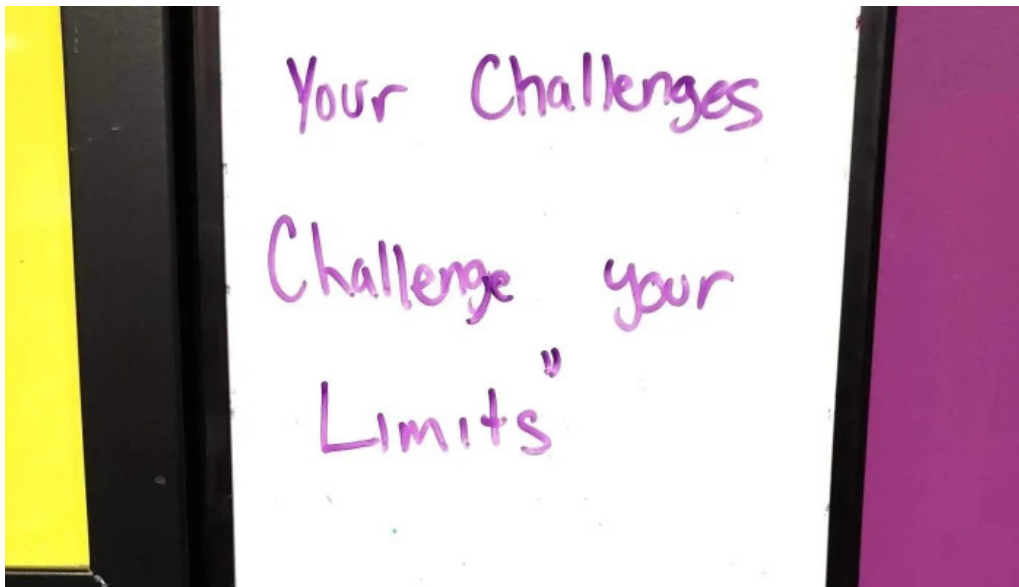 Your Challenges
Challenge your
Limits"